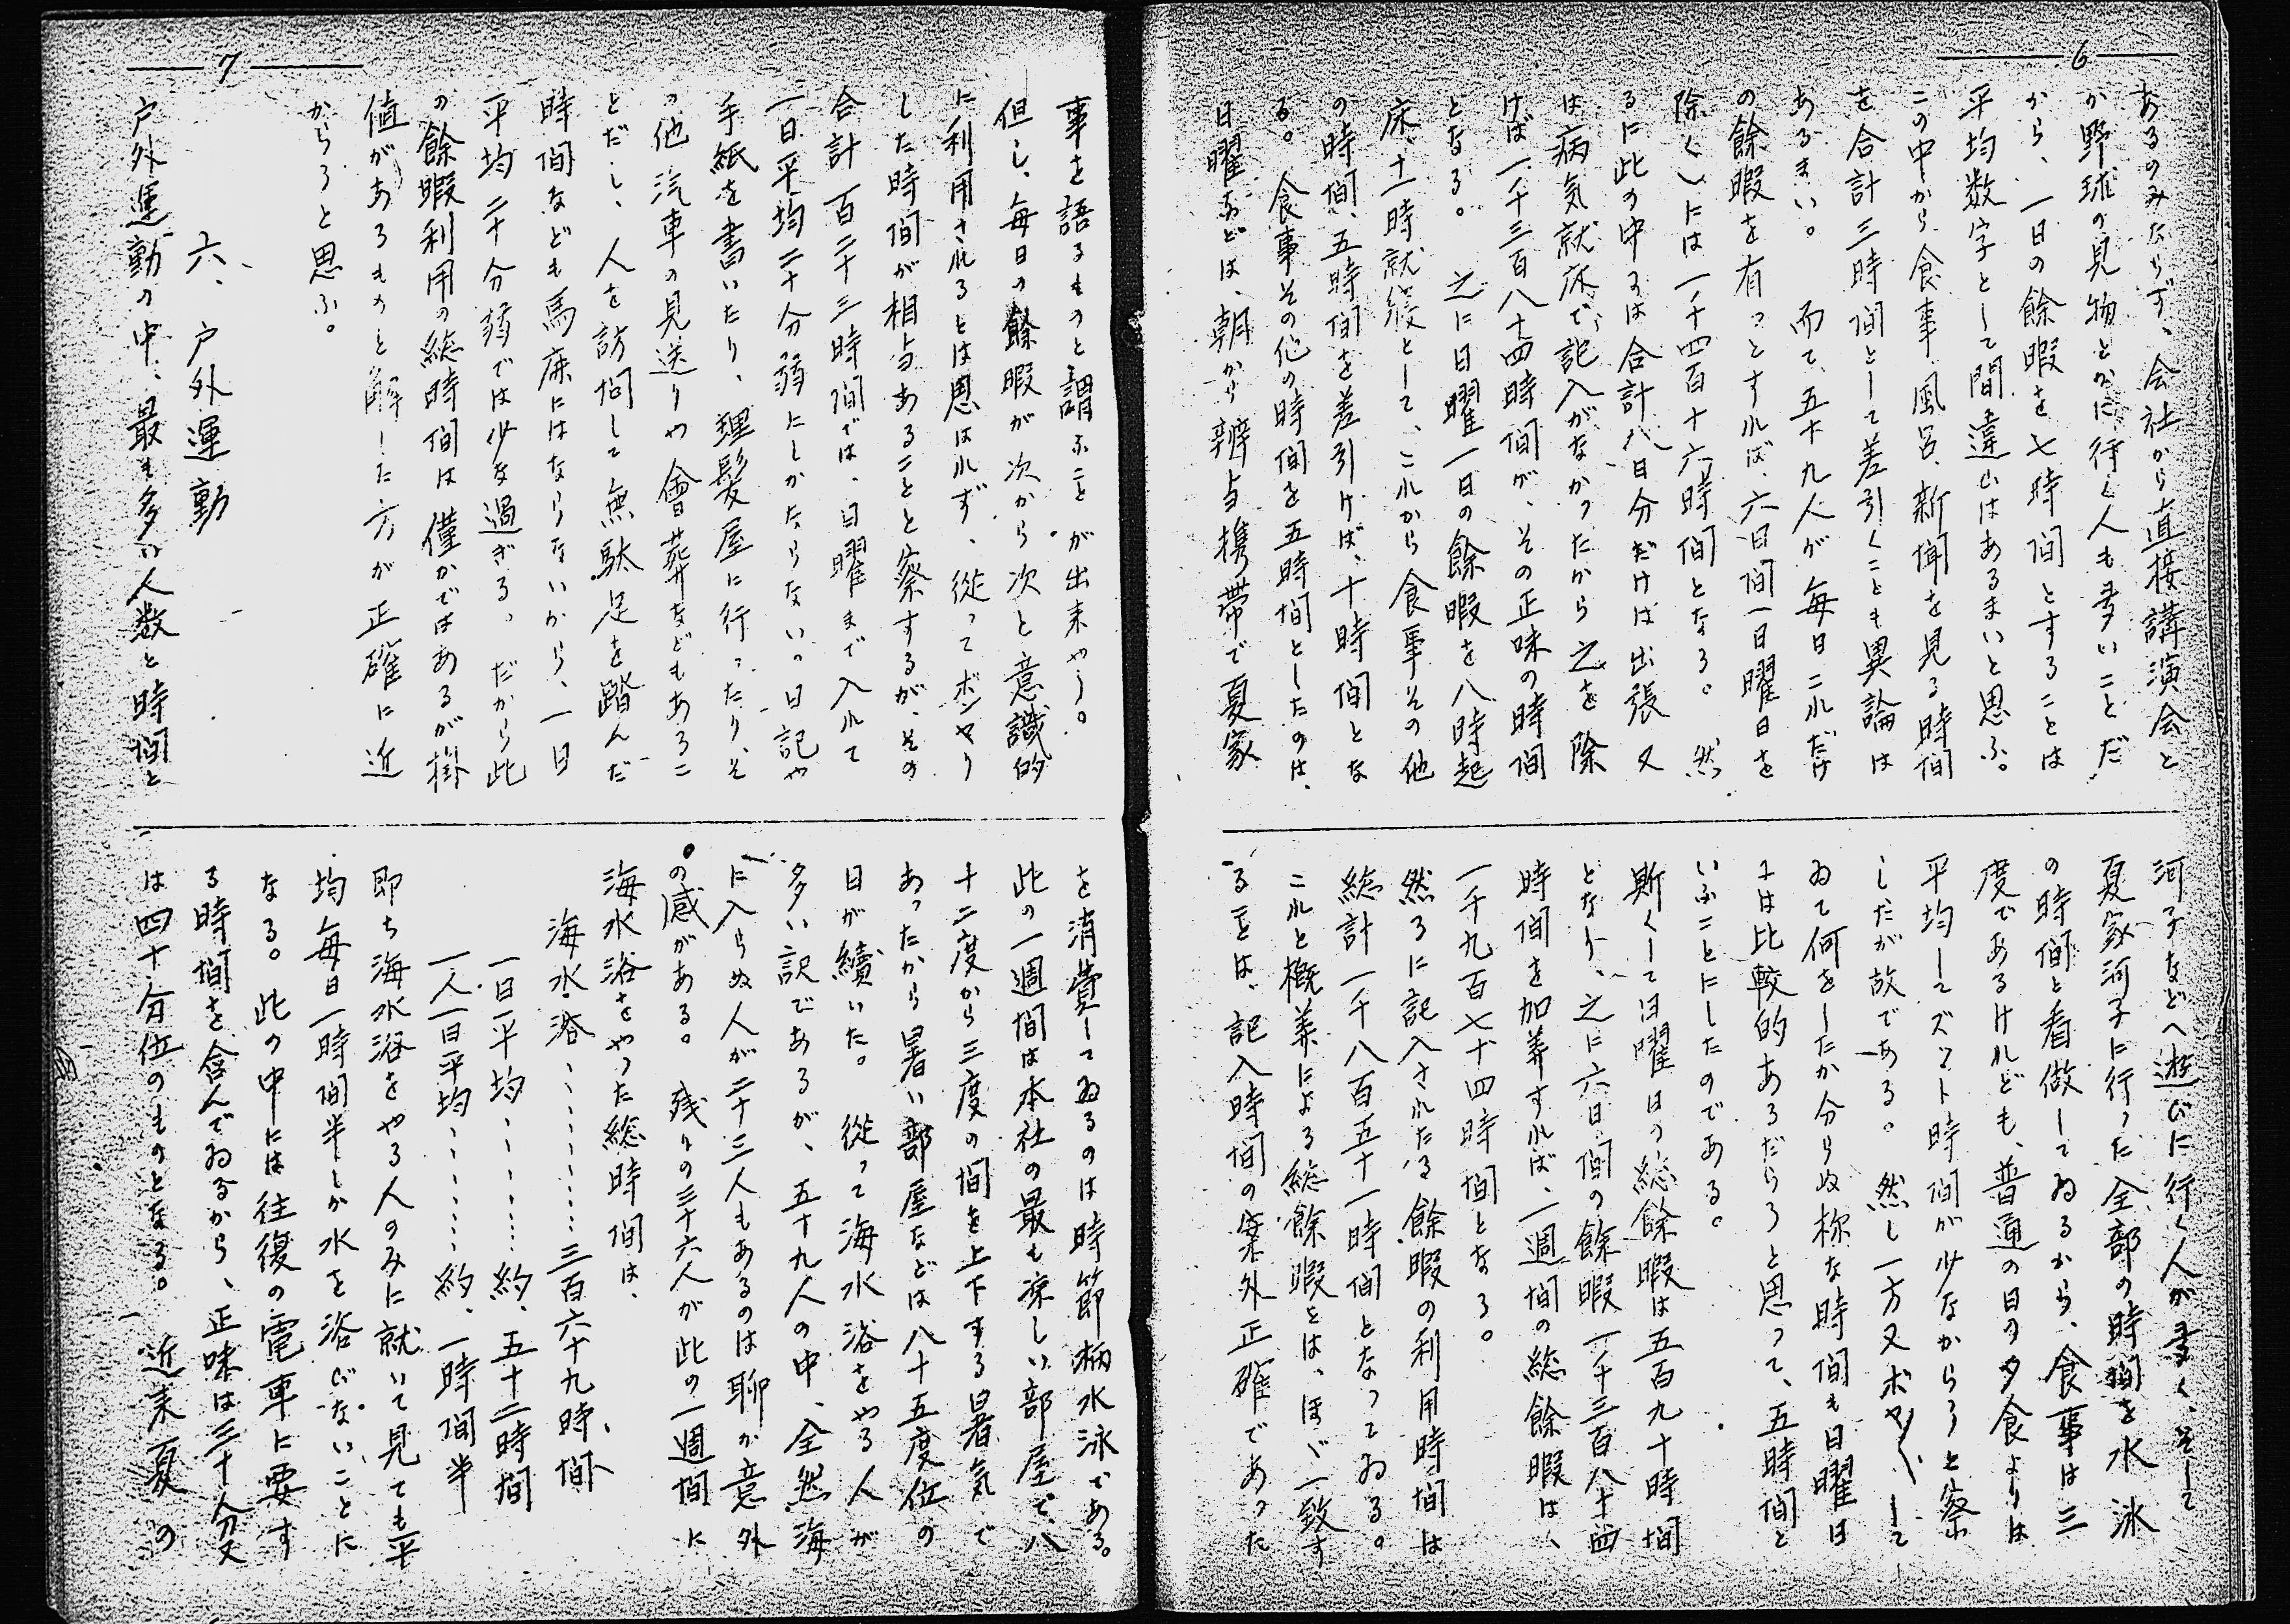 6
あるのみならず、会社から直接講演会と
か野球の見物とかに行く人も多いことだ
から、一日の餘暇を七時間とすることは
平均数字として間違ひはあるまいと思ふ。
この中から食事、風呂、新聞を見る時間
を合計三時間として差引くことも異論は
あるまい。而て、五十九人が毎日これだけ
の餘暇を有つとすれば、六日間一日曜日を
除くには一千四百十六時間となる。然
るに此の中には合計八日分だけは出張又
は病気就床で、記入がなかったから之を除
けば一千三百八十四時間が、その正味の時間
となる。之に日曜一日の餘暇を八時起
床、十一時就寝として、これから食事その他
の時間、五時間を差引けば、十時間とな
る。食事その他の時間を五時間としたのは、
日曜などは、朝から辨当携帯で夏家
河子などへ遊びに行く人が多く、そして
夏家河子に行った全部の時間を水泳
の時間と看做してゐるから、食事は三
度であるけれども、普通の日の夕食よりは
平均してズット時間が少なからうと察
しだが故である。然し一方又ボヤ〱して
ゐて何をしたか分らぬ様な時間も日曜日
には比較的あるだらうと思って、五時間と
いふことにしたのである。
斯くして日曜日の総餘暇は五百九十時間
となり、之に六日間の餘暇一千三百八十四
時間を加算すれば、一週間の総餘暇は、
一千九百七十四時間となる。
然るに記入されたる餘暇の利用時間は
総計一千八百五十一時間となってゐる。
これと概算による総餘暇とは、ほゞ一致す
るとは、記入時間の案外正確であった
7
事を語るものと謂ふことが出来やう。
但し、毎日の餘暇が次から次と意識的
に利用されるとは思はれず、従ってボンヤリ
した時間が相当あることと察するが、その
合計百二十三時間では、日曜まで入れて
一日平均二十分弱にしかならない。日記や
手紙を書いたり、理髪屋に行ったり、そ
の他汽車の見送りや會葬などもあるこ
とだし、人を訪問して無駄足を踏んだ
時間なども馬鹿にはならないから、一日
平均二十分弱では少な過ぎる。だから此
の餘暇利用の総時間は僅かではあるが掛
値があるものと解した方が正確に近
からうと思ふ。
六、戸外運動
戸外運動の中、最も多い人数と時間と
を消費してゐるのは時節柄水泳である。
此の一週間は本社の最も涼しい部屋で、八
十二度から三度の間を上下する暑気で
あったから暑い部屋などは八十五度位の
日が續いた。従って海水浴をやる人が
多い訳であるが、五十九人の中、全然海
に入らぬ人が二十三人もあるのは聊か意外
の感がある。残りの三十六人が此の一週間に
海水浴をやった総時間は、
海水浴…………三百六十九時間
一日平均………約、五十二時間
一人一日平均………約、一時間半
即ち海水浴をやる人のみに就いて見ても平
均毎日一時間半しか水を浴びないことに
なる。此の中には往復の電車に要す
る時間を含んでゐるから、正味は三十分又
は四十分位のものとなる。近来夏の